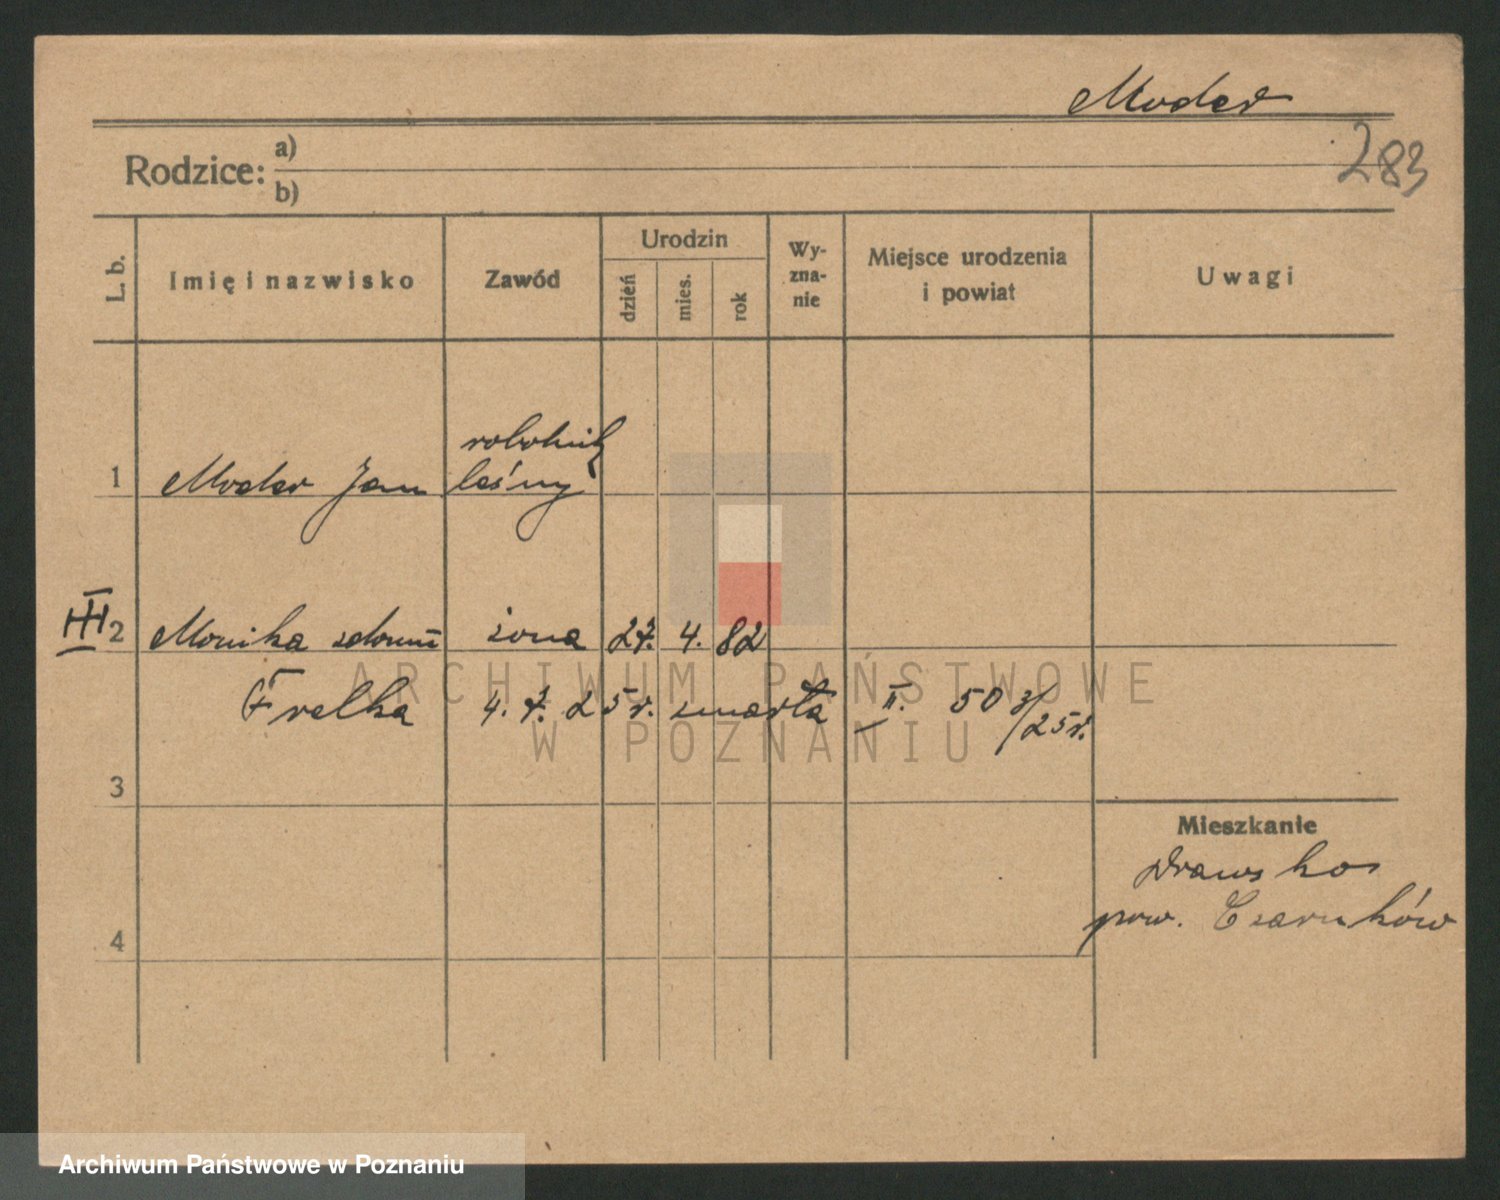 Moder
283
Rodzice: a)
b)
L. b.
Imię i nazwisko
Zawód
Urodzin
dzień
mies.
rok
Wy-
zna-
nie
Miejsce urodzenia
i powiat
Uwagi
robotnik
1 Moder Jan leśny
III 2 Monika żona 27. 4. 82
Frelka 4. 7. 25 r. zmarła II. 50 3/25 r.
3
Mieszkanie
Drawsko
pow. Czarnków
4
ARCHIWUM PAŃSTWOWE
W POZNANIU
Archiwum Państwowe w Poznaniu